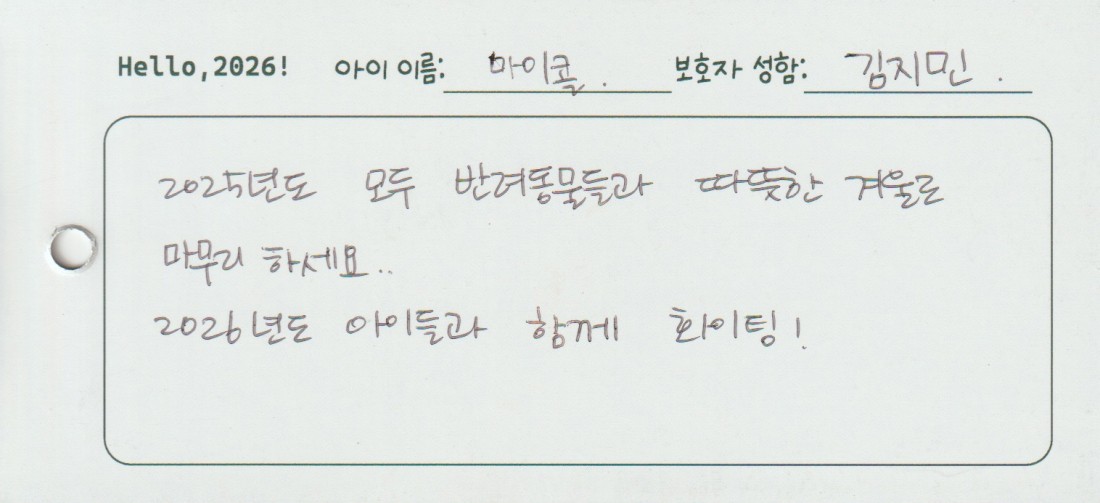 Hello,2026! 아이 이름: 마이콜. 보호자 성함: 김지민.
2025년도 모두 반려동물들과 따뜻한 겨울로
마무리 하세요..
2026년도 아이들과 함께 화이팅!